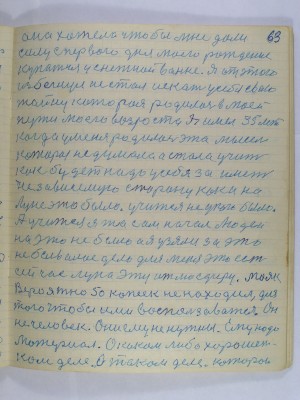 она хотела чтобы мне дали 63
силу с первого дня моего рождения
купатся у снежной ванне. Я от этого
не стал искать у себя свою
тайну которая родилась в моей
пути моего возроста. Я имел 35 лет
когда у меня родилась эта мысль
которая не думалса а стала учить
как будет надо у себя за иметь
независимую сторону как на
луне это было. учится не у кого было.
А учится я та сам начал людей
на это не было а я узял за это
небывалае дело для меня это есть
сейчас луна эту атмосферу. Маяк
Вероятно 50 копеек не находил, для
того чтобы ими воспользоватся. Он
не человек. Они ему не нужны. Ему надо
Материал. О каком либо хорошен-
ком деле. О таком деле. которое